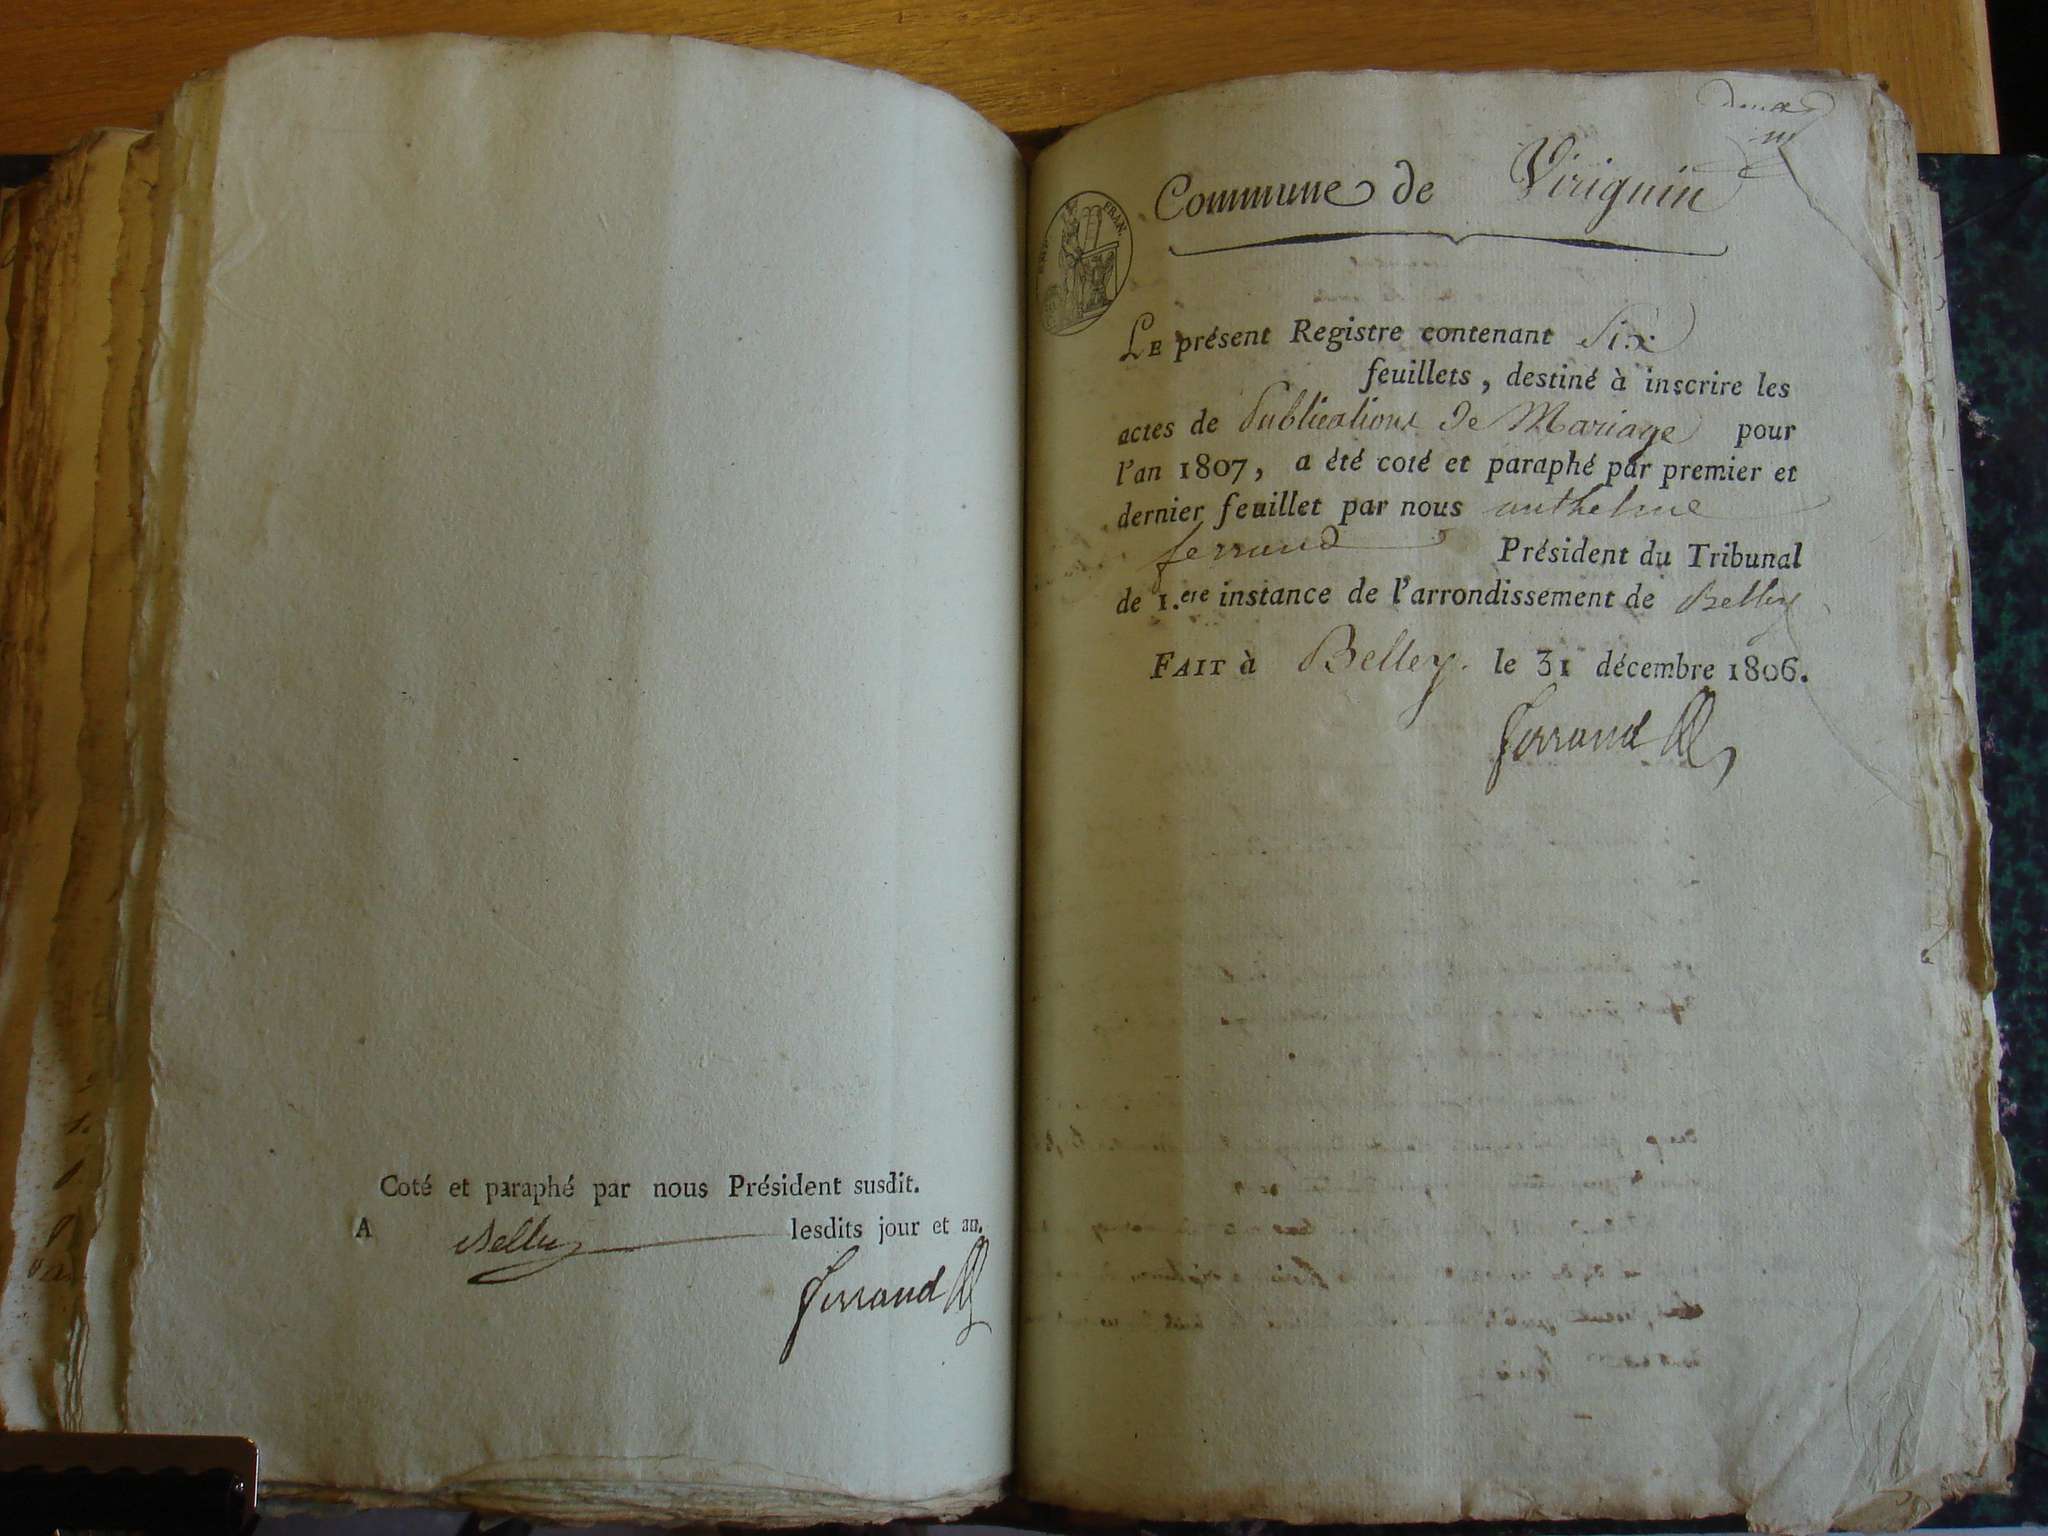 Coté et paraphé par nous Président susdit.
A Belley lesdits jour et an.
Ferrand
Commune de Virignin
FRAN.
LE présent Registre contenant Six
feuillets, destiné à inscrire les
actes de Publications de Mariage pour
l'an 1807, a été coté et paraphé par premier et
dernier feuillet par nous anthelme
ferrand Président du Tribunal
de 1.ere instance de l'arrondissement de Belley
FAIT à Belley. le 31 décembre 1806.
Ferrand